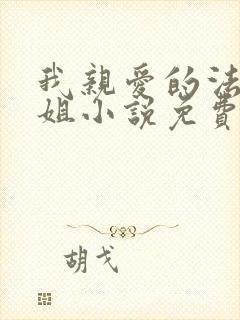 我親愛的法
姐小說免費
胡戈